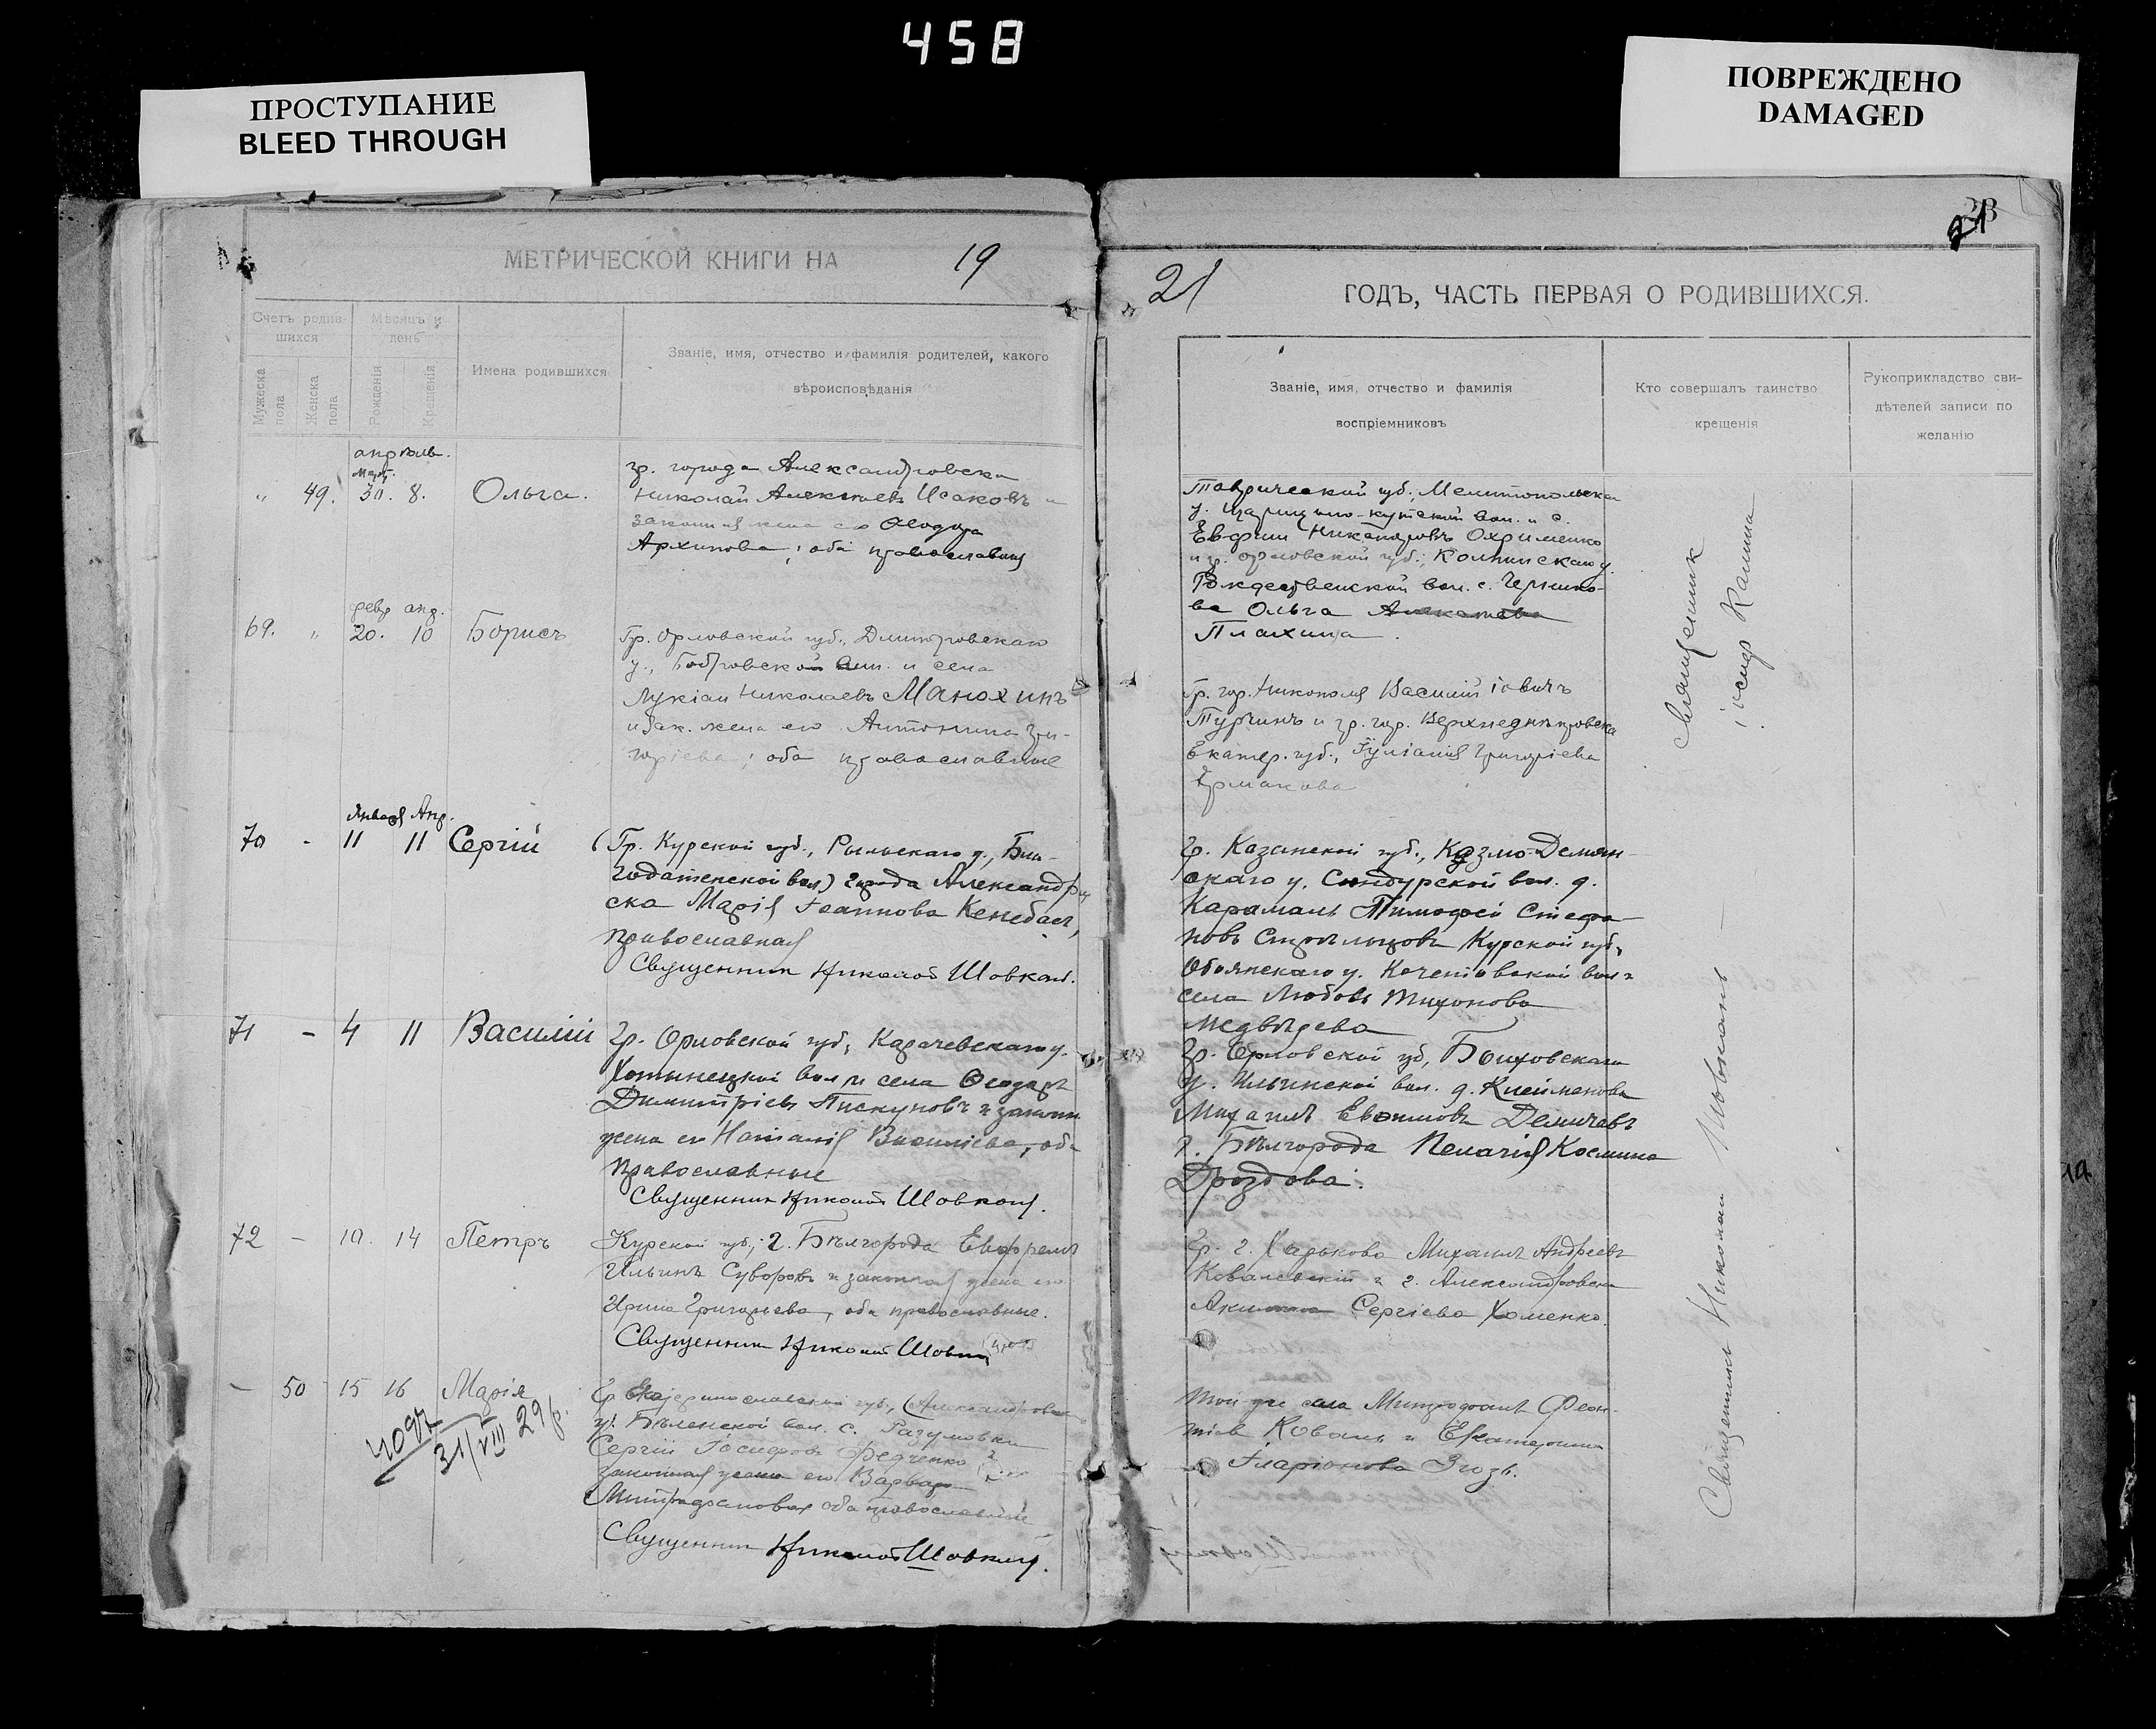 458
ПРОСТУПАНИЕ
BLEED THROUGH
ПОВРЕЖДЕНО
DAMAGED
МЕТРИЧЕСКОЙ КНИГИ НА 19
21 ГОДЪ, ЧАСТЬ ПЕРВАЯ О РОДИВШИХСЯ.
Счетъ родив-
шихся
Мужеска
пола
Женска
пола
Мѣсяцъ и
день
Рожденія
Крещенія
Имена родившихся
Званіе, имя, отчество и фамилія родителей, какого
вѣроисповѣданія
Званіе, имя, отчество и фамилія
воспріемниковъ
Кто совершалъ таинство
крещенія
Рукоприкладство сви-
дѣтелей записи по
желанію
апрѣль.
март.
" 49. 30. 8. Ольга.
гр. города Александровска
Николай Алексѣевъ Исаковъ и
законная жена его Ѳеодора
Архипова; оба православны
Таврической губ., Мелитопольска
у. Царицыно-кутской вол. и с.
Евфим Никаноровъ Охрименко
и гр. орловской губ.,
Рождественской вол. с.
ва Ольга
Плахина.
февр апр.
69. " 20. 10 Борисъ
Гр. Орловской губ., Дмитровскаго
у., Бобровской вол. и села
Лукіан Николаевъ Манохинъ
и зак. жена его Антонина Гри-
горіева; оба православные
Гр. гор. Никополя Василій
Турчинъ и гр. гор. Верхнеднѣпровска
Екатер. губ., Іуліанія Григоріева
Ермакова
Январ Апр.
70 - 11 11 Сергій
(Гр. Курской губ., Рыльскаго у., Бла-
годатенской вол) города Александров
ска Марія Іоаннова
православная
Священник Николай Шовкопл.
Гр. Казанской губ., Козмо-Демьян-
скаго у. вол. д.
Карамаль Тимофей Стефа-
новъ Стрѣльцовъ Курской губ,
Обоянскаго у. Кочетовской вол и
села Любовь Тихонова
Медвѣдева
71 - 4 11 Василій
Гр. Орловской губ, Карачевскаго у.
Хотынецкой вол и села Ѳеодоръ
Димитріевъ Пискуновъ и законн
жена ея Наталія Васильева, оба
православные
Священник Николай Шовкопл.
Гр. Орловской губ, Болховскаго
у. Ильинской вол. д. Клейменова
Михаилъ
г. Бѣлгорода Пелагія Космина
Дроздова.
72 - 10. 14 Петръ
Курской губ, г. Бѣлгорода Ефремъ
Ильинъ Суворовъ и законная жена его
Ирина Григорьева, оба православные.
Священник Николай
Гр. г. Харькова Михаилъ Андреевъ
Ковалевскій и г. Александровска
Сергіева Хоменко.
- 50 15 16 Марія
31/VIII 29 р.
Гр. Екатеринославской губ., (Александровск
у. Бѣленской вол. с. Разумовки
Сергій Іосифовъ Федченко и
законная жена его Варвара
Митрофанова оба православный
Священник Николай Шовкопл.
той же села Митрофанъ Леон-
тіев Коваль и Екатерина
Иларіонова
Священник
іосиф
Священникъ Николай